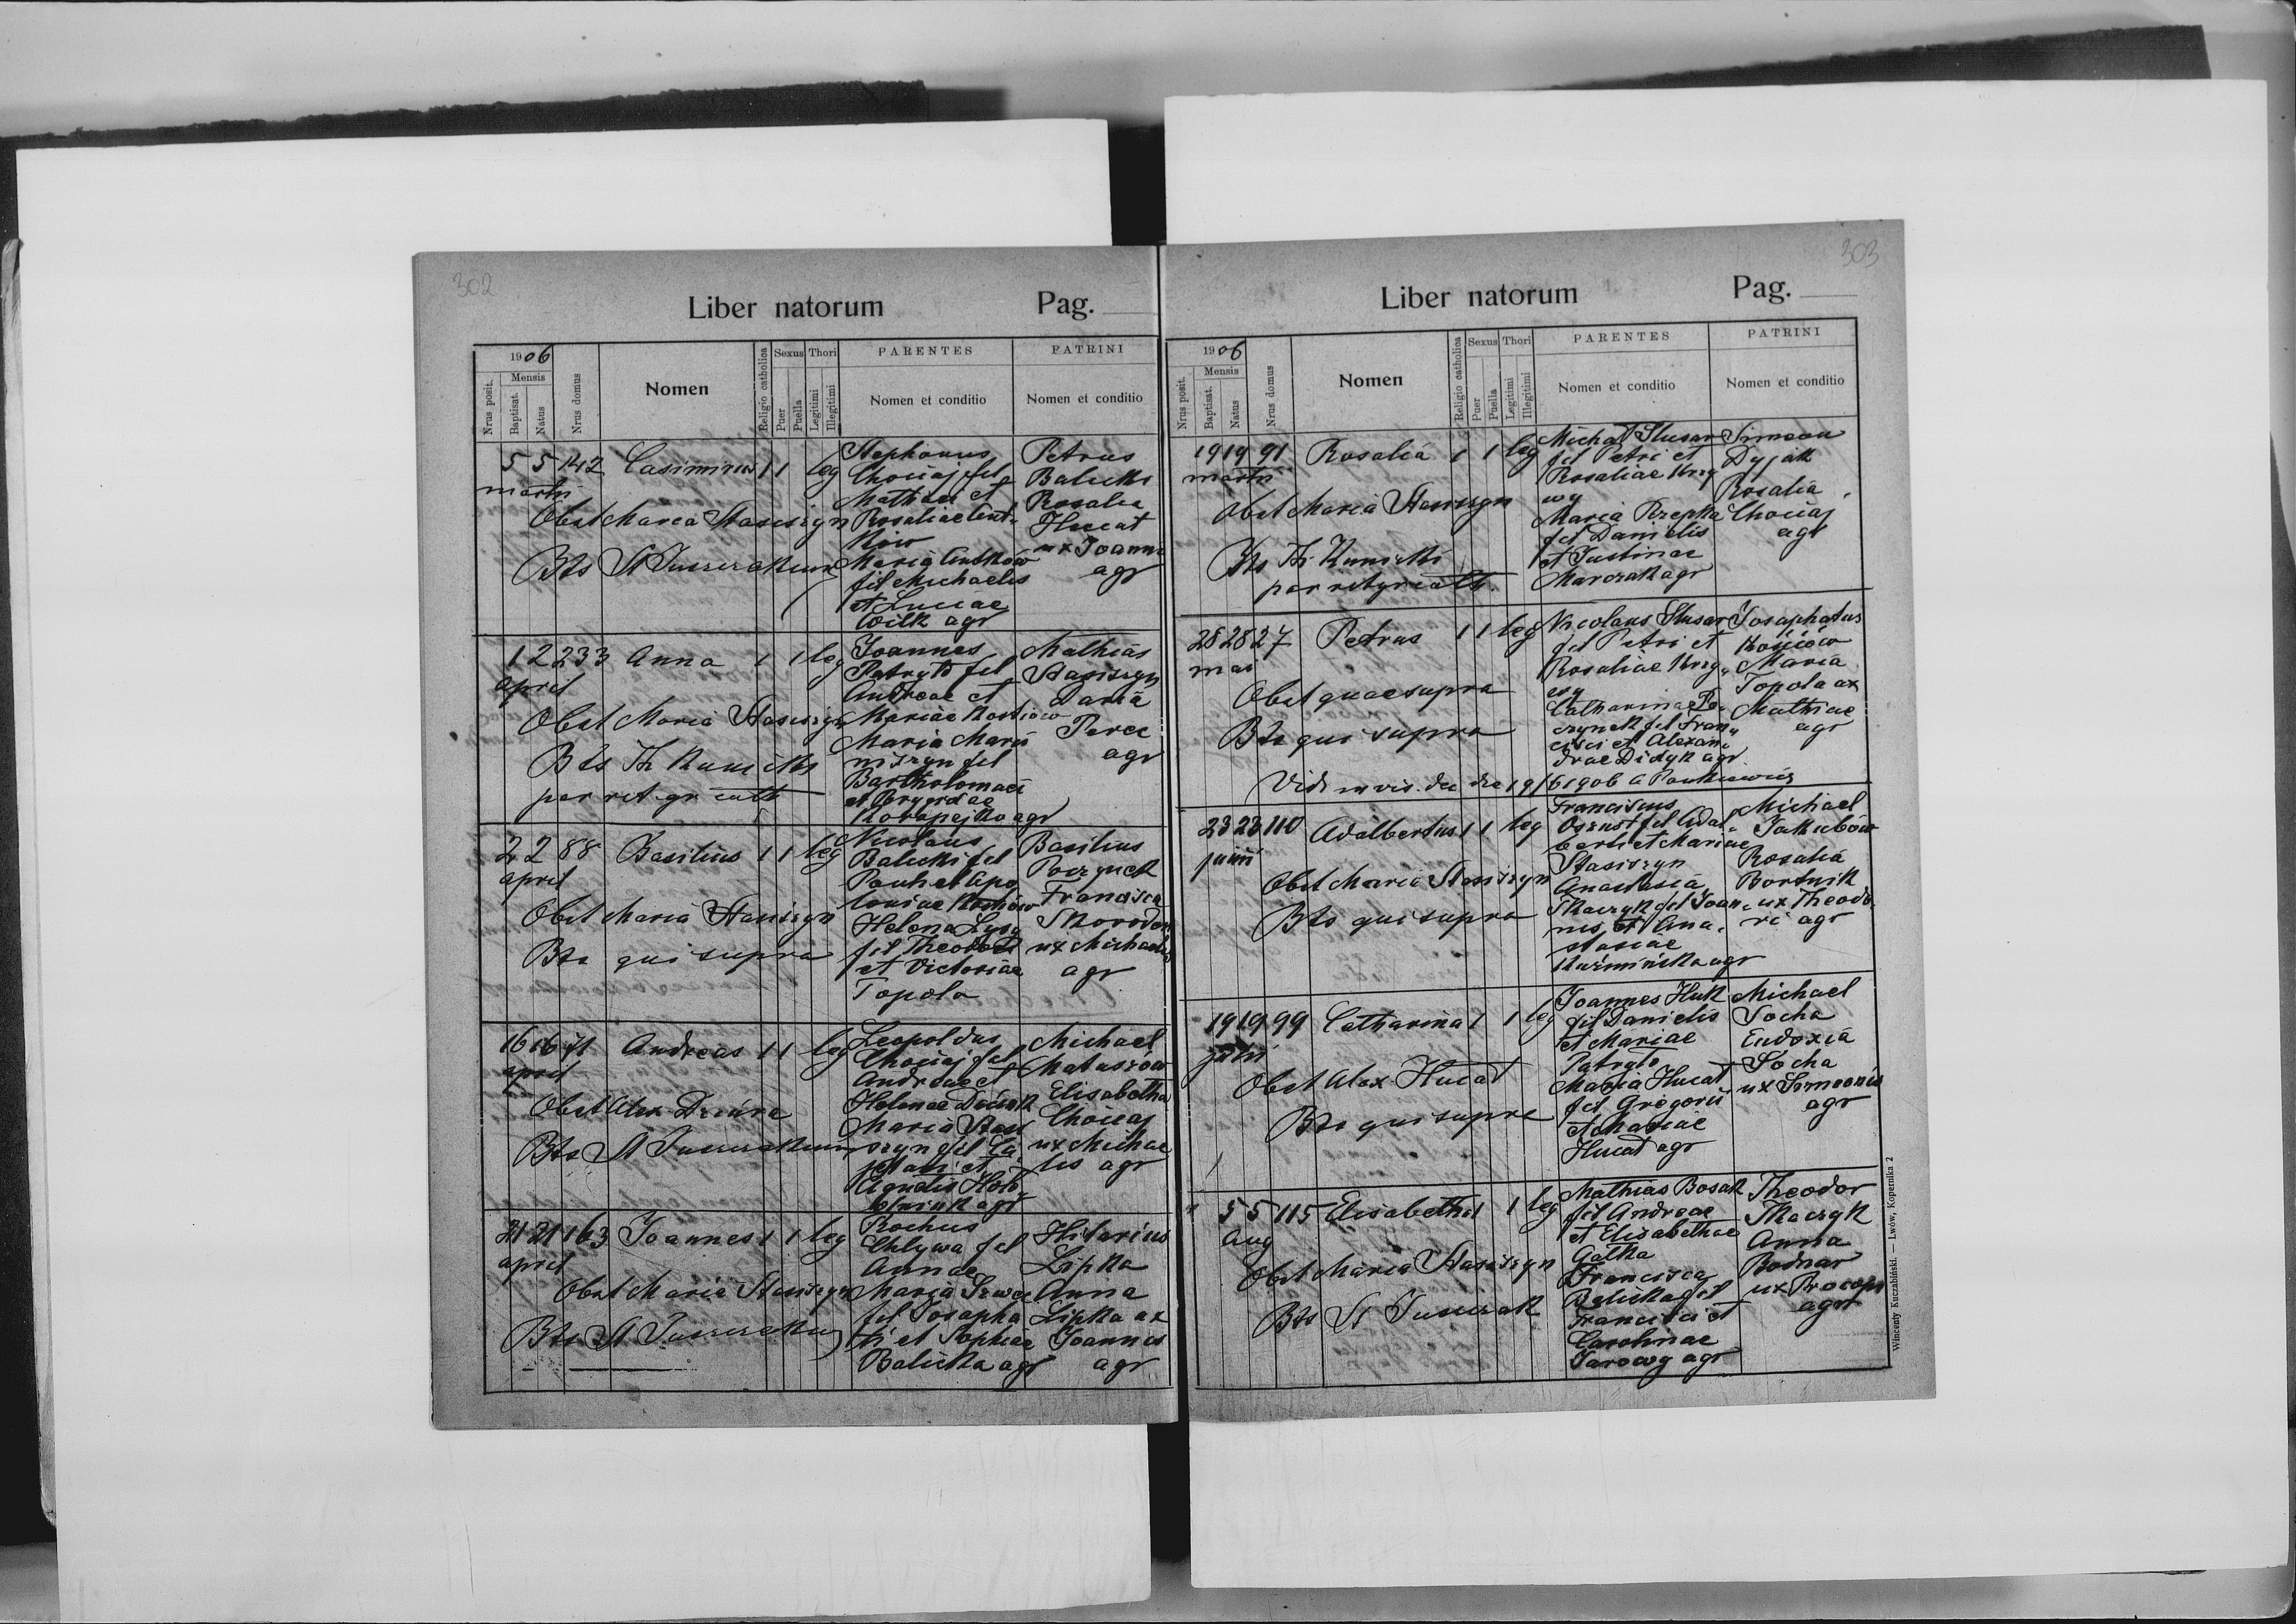 302
Liber natorum Pag.
1906
Mensis
Nrus posit.
Baptisat.
Natus
Nrus domus
Nomen
Religio catholica
Sexus
Puer
Puella
Thori
Legitimi
Illegitimi
PARENTES
Nomen et conditio
PATRINI
Nomen et conditio
5 5 142 Casimirus 1 1 leg
martii
Obst Maria Stasiszyn
Bts St
Stephanus
Chociaj fil
Mathaei et
Rosaliae Ant-
ków
Maria Antków
fil Michaelis
et Luciae
Wilk agr
Petrus
Balicki
Rosalia
Hucat
ux Joannis
agr
1 2 233 Anna 1 1 leg
april
Obst Maria Stasiszyn
Bts Th Kunicki
per rit. gr. cath
Joannes
Patryło fil
Andreae et
Mariae
Maria Mary
niszyn fil
Bartholomaei
et Brygidae
agr
Mathias
Stasiszyn
Daria
Perec
agr
2 2 88 Basilius 1 1 leg
april
Obst Maria Stasiszyn
Bts qui supra
Nicolaus
Balicki fil
Pauli et Apo
loniae
Helena Łysa
fil Theodori
et Victoriae
Topola
Basilius
Poczynek
Francisca
Skoroden
ux Michaelis
agr
16 16 71 Andreas 1 1 leg
april
Obst Alex Dziura
Bts St
Leopoldus
Chociaj fil
Andreae et
Helenae
Maria Stasi
szyn fil Ca
jetani et
Agnetis Hoło
agr
Michael
Matuszów
Elisabetha
Chociaj
ux Michae
lis agr
21 21 163 Joannes 1 1 leg
april
Obst Maria Stasiszyn
Bts St
Rochus
Chlywa fil
Annae
Maria Szwec
fil Josapha
ti et Sophiae
Balicka agr
Hilarius
Lipka
Anna
Lipka ux
Joannis
agr
303
Liber natorum Pag.
1906
Mensis
Nrus posit.
Baptisat.
Natus
Nrus domus
Nomen
Religio catholica
Sexus
Puer
Puella
Thori
Legitimi
Illegitimi
PARENTES
Nomen et conditio
PATRINI
Nomen et conditio
19 19 91 Rosalia 1 1 leg
martii
Obst Maria Stasiszyn
Bts Th Kunicki
per rit gr cath.
Michał Slusar
fil Petri et
Rosaliae Krzy
wy
Maria Rzepka
fil Danielis
et Justinae
Marczak agr
Simeon
Dyjak
Rosalia
Chociaj
agr
28 28 27 Petrus 1 1 leg
mai
Obst quae supra
Bts qui supra
Nicolaus Slusar
fil Petri et
Rosaliae Krzy
wy
Catharina Po-
czynek fil Fran-
cisci et Alexan-
drae Didyk agr.
Josaphatus
Kościów
Maria
Topola ux
Mathiae
agr
Vidi in vis. dec die 19/6 1906
23 23 110 Adalbertus 1 1 leg
junii
Obst Maria Stasiszyn
Bts qui supra
Franciscus
Oszust fil Adal-
berti et Mariae
Stasiszyn
Anastasia
Tkaczyk fil Joan-
nis et Ana-
stasiae
Kuźmińska agr
Michael
Jakubów
Rosalia
Bortnik
ux Theodo-
ri agr
19 19 99 Catharina 1 1 leg
Obst Alex Hucat
Bts qui supra
Joannes Huk
fil Danielis
et Mariae
Patryło
Maria Hucat
fil Gregorii
et Mariae
Hucat agr
Michael
Socha
Eudoxia
Socha
ux Simeonis
agr
5 5 115 Elisabetha 1 1 leg
Aug
Obst Maria Stasiszyn
Bts St
Mathias Bosak
fil Andreae
et Elisabethae
Gałka
Francisca
Balicka fil
Francisci et
Carolinae
Jarowy agr
Theodor
Tkaczyk
Anna
Bodnar
ux Procopii
agr
Wincenty Kuczabiński. — Lwów, Kopernika 2